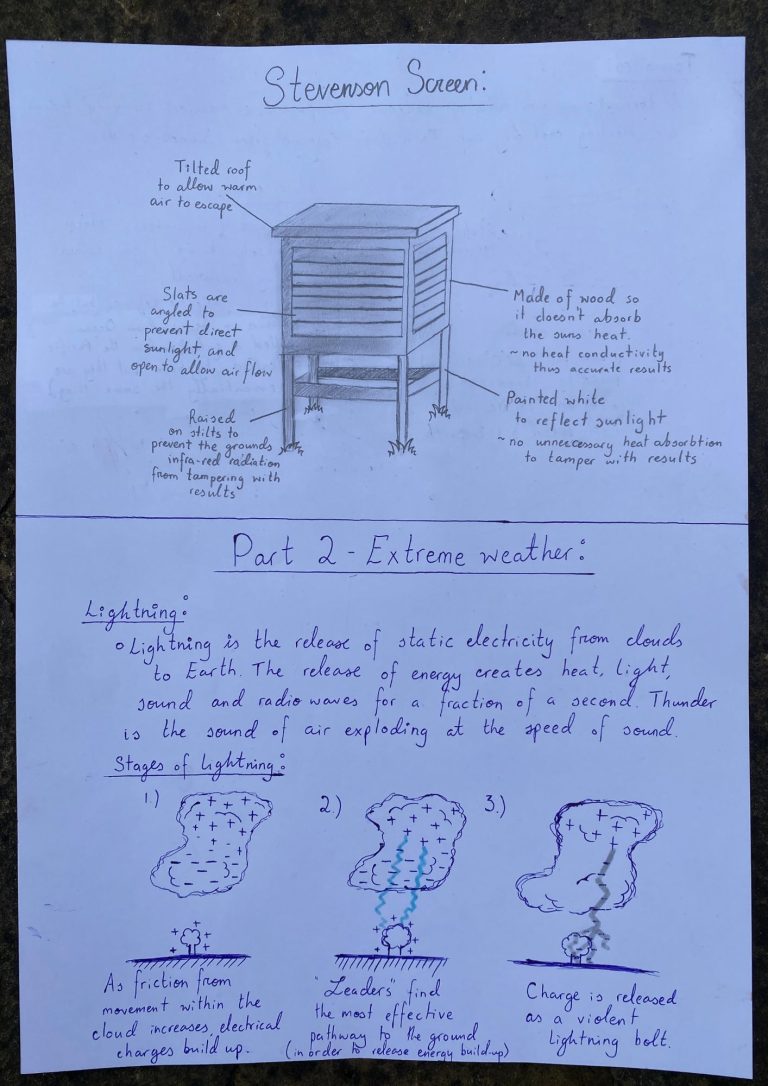 Stevenson Screen:
Tilted roof
to allow warm
air to escape
Slats are
angled to
prevent direct
sunlight, and
open to allow air flow
Raised
on stilts to
prevent the grounds
infra-red radiation
from tampering with
results
Made of wood so
it doesn't absorb
the suns heat.
~ no heat conductivity
thus accurate results
Painted white
to reflect sunlight
~ no unneccessary heat absorbtion
to tamper with results
Part 2 - Extreme weather:
Lightning:
○ Lightning is the release of static electricity from clouds
to Earth. The release of energy creates heat, light,
sound and radio waves for a fraction of a second. Thunder
is the sound of air exploding at the speed of sound.
Stages of lightning:
1.)
As friction from
movement within the
cloud increases, electrical
charges build up.
2.)
"Leaders" find
the most effective
pathway to the ground
(in order to release energy build-up)
3.)
Charge is released
as a violent
lightning bolt.